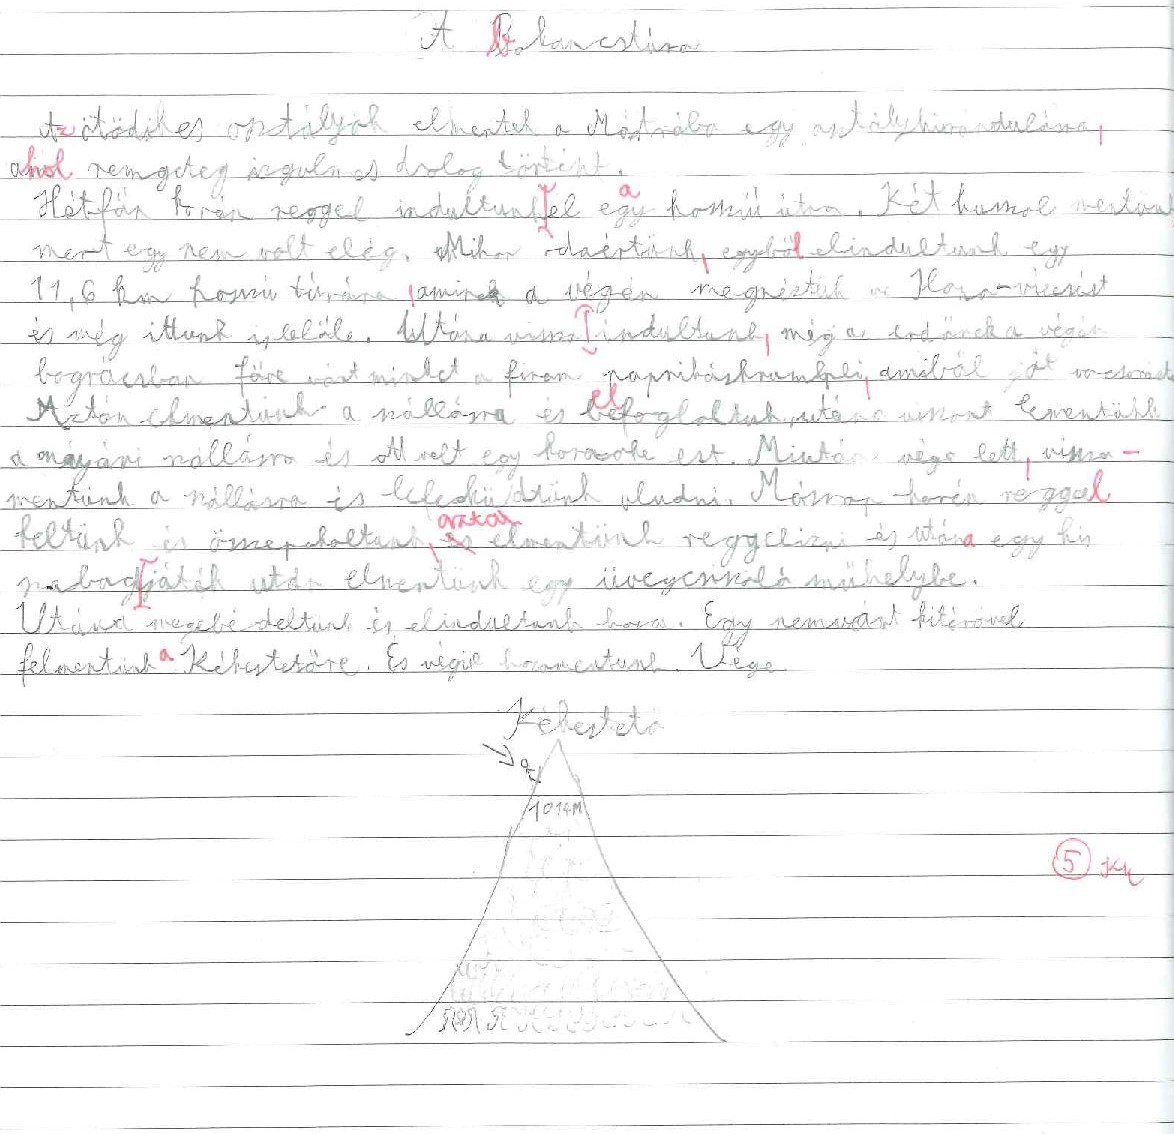 A bakancstúra
Az ötödikes osztályok elmentek a Mátrába egy osztálykirándulásra,
ahol rengeteg izgalmas dolog történt.
Hétfőn korán reggel indultunk el egy a hosszú útra. Két busszal mentünk
mert egy nem volt elég. Mikor odaértünk, egyből elindultunk egy
11,6 km hosszú túrára, aminek a végén megnéztük a Ilona-vízesést
és még ittunk is belőle. Utána vissza indultunk, még az erdőnek a végén
bográcsban főve várt minket a finom paprikáskrumpli, amiből jót vacsoráztunk
Aztán elmentünk a szállásra és el befoglaltuk, utána viszont lementünk
a mátyási szállásra és ott volt egy karaoke est. Miután vége lett, vissza-
mentünk a szállásra és lefeküdtünk aludni. Másnap korán reggel
keltünk és összepakoltunk, és aztán elmentünk reggelizni és utána egy kis
szabad játék után elmentünk egy üvegcsiszoló műhelybe.
Utána megebédeltünk és elindultunk haza. Egy nemvárt kitérővel
felmentünk a Kékestetőre. És végül hazamentünk. Vége
Kékestető
1014M
5